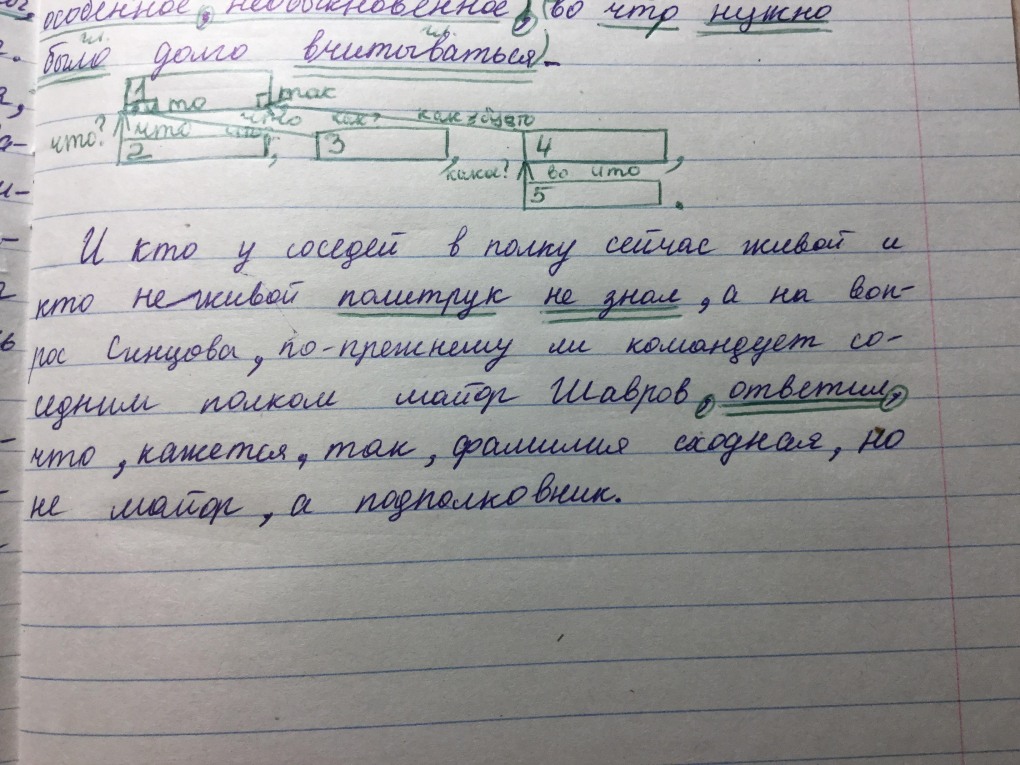 особенное, необыкновенное, (во что нужно
гл. гл.
было долго вчитываться).
1 так
что?
что как, как будто
2, 3, 4,
какое? во что
5.
И кто у соседей в полку сейчас живой и
кто не живой политрук не знал, а на воп-
рос Синцова, по-прежнему ли командует со-
едним полком майор Шавров, ответил,
что, кажется, так, фамилия сходная, но
не майор, а подполковник.